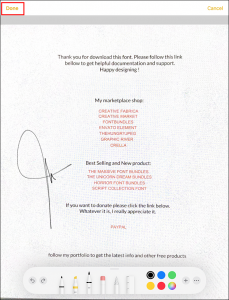 Done
Cancel
Thank you for download this font. Please follow this link
bellow to get helpful documentation and support.
Happy designing !
My marketplace shop:
CREATIVE FABRICA
CREATIVE MARKET
FONTBUNDLES
ENVATO ELEMENT
THEHUNGRYJPEG
GRAPHIC RIVER
CREELLA
Best Selling and New product:
THE MASSIVE FONT BUNDLES
THE UNICORN DREAM BUNDLES
HORROR FONT BUNDLES
SCRIPT COLLECTION FONT
If you want to donate please click the link below.
Whatever it is, I really appreciate it.
PAYPAL
follow my portfolio to get the latest info and other free products